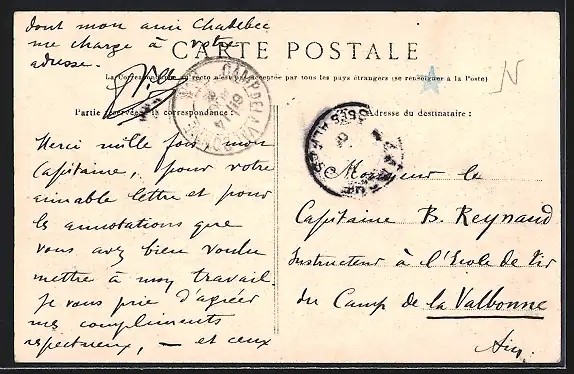 dont mon ami Chabebec
me charge à votre
adresse.
CARTE POSTALE
La Correspondance au recto n'est pas acceptée par tous les pays étrangers (se renseigner à la Poste)
N
Partie réservée à la correspondance :
Adresse du destinataire :
CAMP DE LA VALBONNE
Merci mille fois mon
Capitaine, pour votre
aimable lettre et pour
les annotations que
vous avez bien voulu
mettre à mon travail.
Je vous prie d'agréer
mes compliments
respectueux, — et ceux
Monsieur le
Capitaine B. Reynaud
Instructeur à l'Ecole de Tir
du Camp de la Valbonne
Ain.